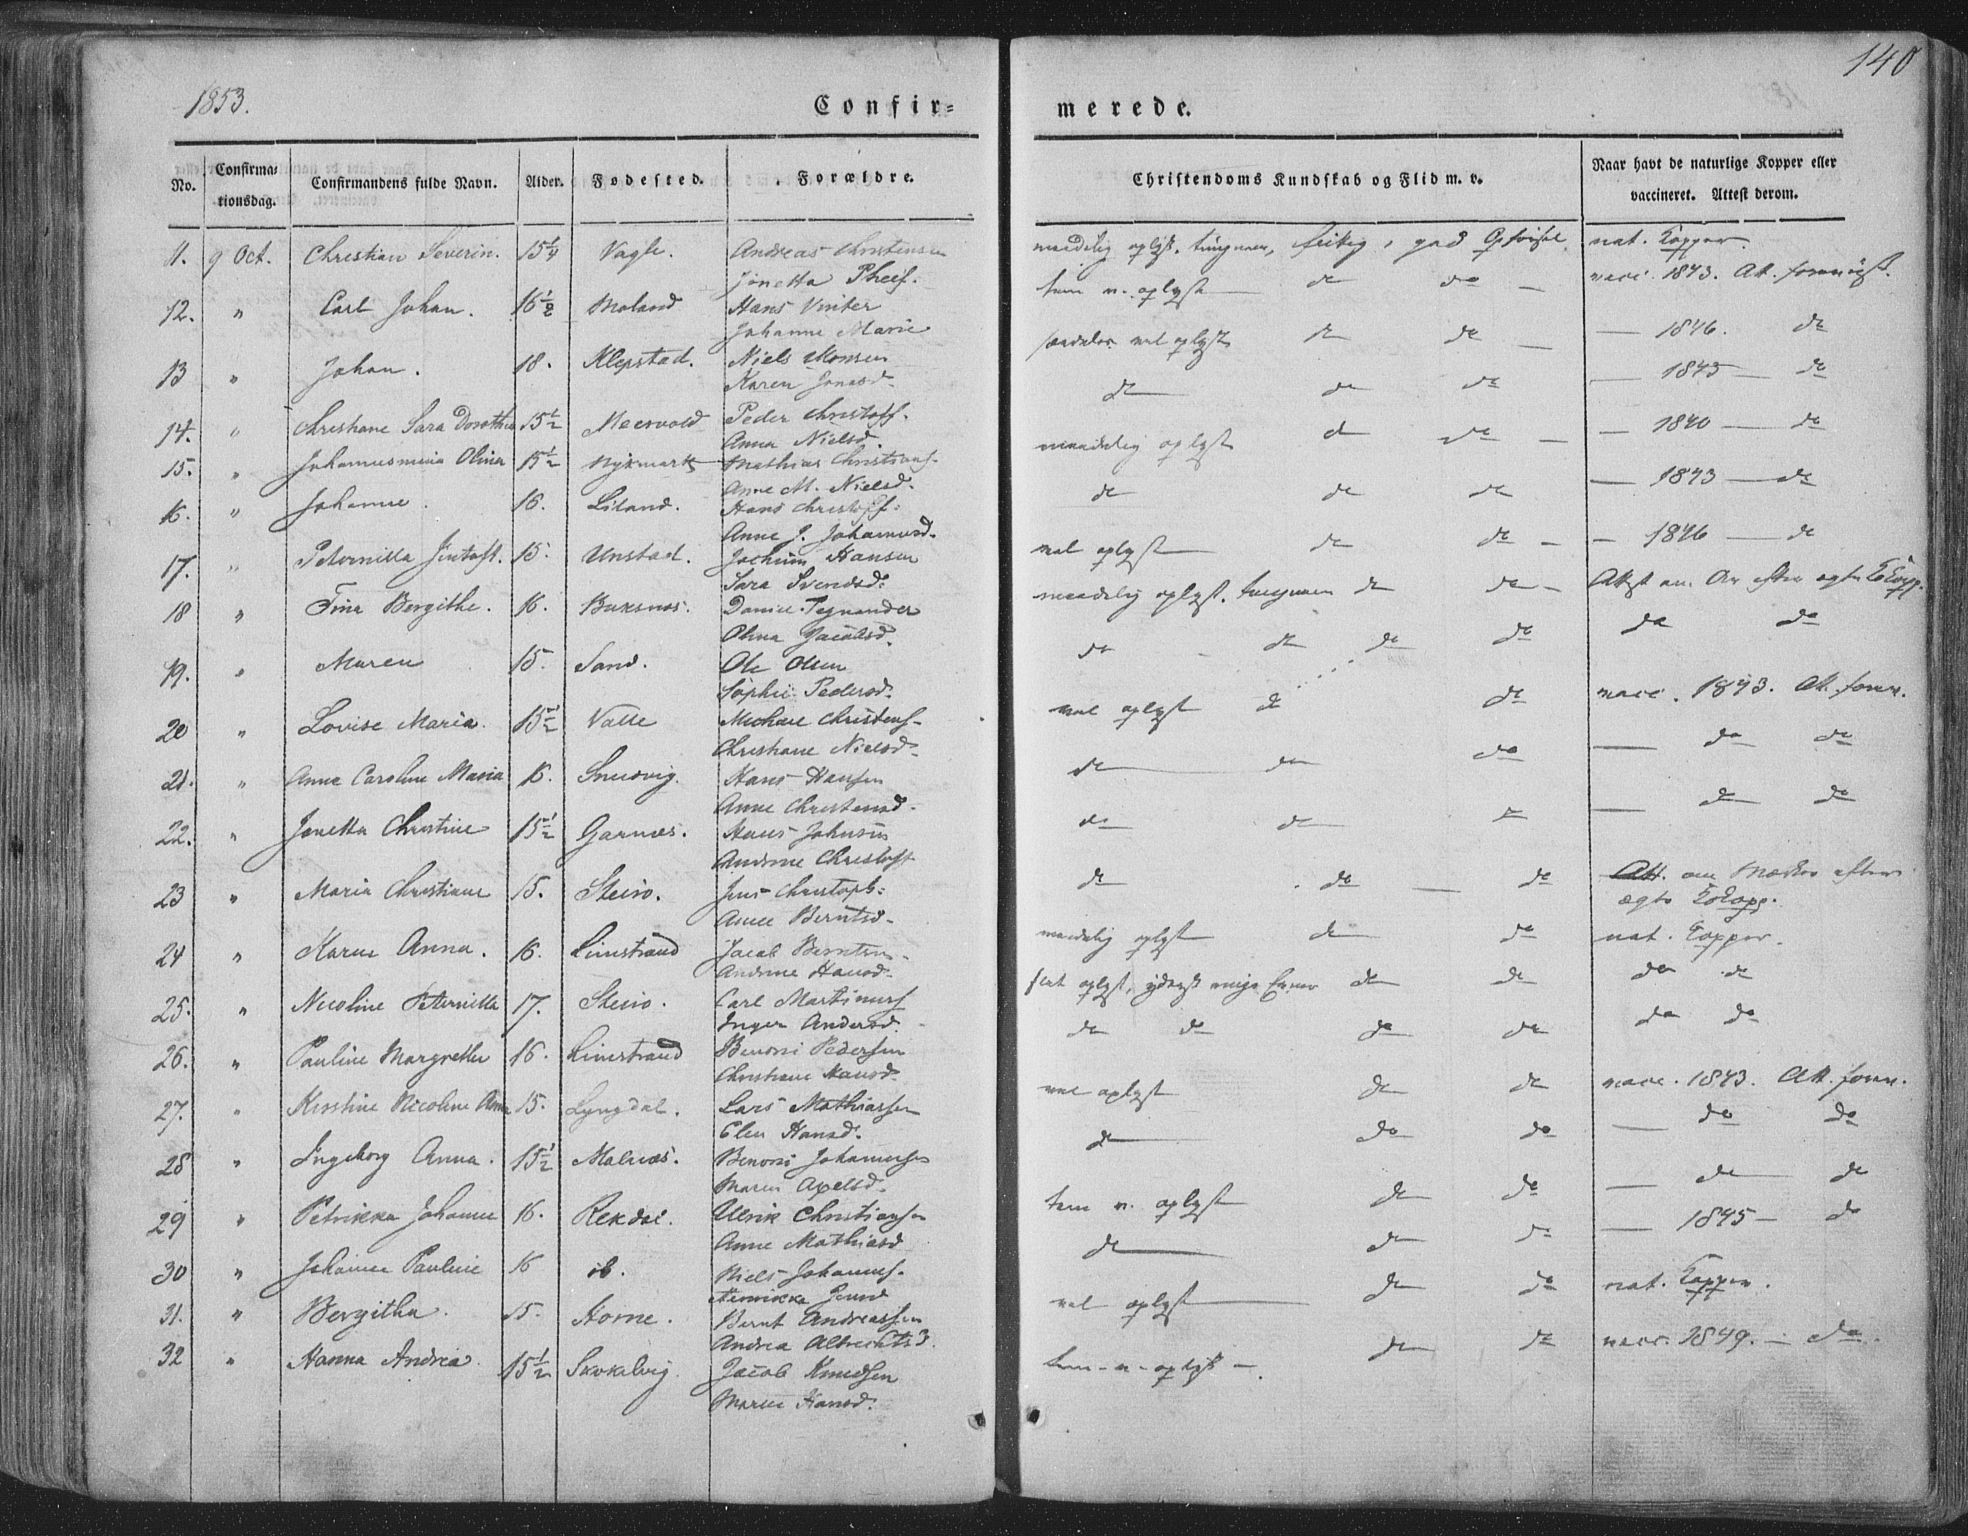 1853.
140
Confir=
merede.
No.
Confirma-
tionsdag.
Confirmandens fulde Navn.
Alder.
Fødested.
Forældre.
Christendoms Kundskab og Flid m. v.
Naar havt de naturlige Kopper eller
vaccineret. Attest derom.
11. 9 Oct. Christian Severin. 15 1/4 Vagle. Andreas Christensen
Jonetta
maadelig oplyst. nat. Kopper.
12. " Carl Johan. 16 1/2 Moland Hans Vinter
Johanne Marie
tem. v. oplyst do do vacc. 1843. At.
13 " Johan. 18. Klepstad. Niels Monsen
Karen Jonasd.
vel oplyst do do — 1846. do
14. " Christiane Sara Dorothea 15 1/2 Meervold Peder Christoff.
Anna Nielsd.
do do do — 1843 — do
15. " Johannesminia Olina 15 1/2 Nykmark Mathias Christians.
Anne M. Nielsd.
maadelig oplyst d do — 1840 — do
16. " Johanne. 16. Liland. Hans Christoff.
Anne J. Johannesd.
do do do — 1843 — do
17. " Peternilla 15. Unstad. Jochum Hansen
Sara Svendsd.
vel oplyst do do — 1846 — do
18 " Tina Bergithe. 16. Buksnæs. Daniel Tegnander
Olina Jacobsd.
maadelig oplyst. do do Attest om Ar efter ægte KKopp.
19. " Maren 15. Sand. Ole Olsen
Sophie Pedersd.
do do do do do do
20 " Lovise Maria. 15 1/2 Valle Michael Christens.
Christiane Nielsd.
vel oplyst do do vacc. 1843. At. forev.
21. " Anne Caroline Maria 16. Hans Hansen
Anne Christensd.
do do do — do do
22. " Jonetta Christine 15 1/2 Garnæs. Hans Johnsen
Andrine Christoff
do do do — do do
23 " Maria Christiane 15. Steiro. Jens Christoph:
Anne Berntsd.
do do — do Att. om Mærker efter
ægte KKopp.
24 " Karen Anna. 16. Limstrand Jacob Berntsen.
Andrine Hansd.
maadelig oplyst do do nat. Kopper.
25. " Nicoline Peternilla 17. Steiro. Carl Martinus
Inger Andersd.
oplyst, do do do do
26. " Pauline Margrethe 16. Limstrand Benoni Pedersen
Christiane Hansd.
do do do do do do
27. " Kirstine Nicoline Anna 15. Lyngdal. Lars Mathiassen
Elen Hansd.
vel oplyst do do vacc. 1843. Att. forev.
28 " Ingeborg Anna. 15 1/2 Malnæs. Benoni Johannesen
Maren Axelsd.
do do do — do do
29 " Petrikka Johanne 16. Rekdal. Ulrik Christiansen
Anne Mathiasd
tem v. oplyst do do — do do
30 " Johanne Pauline 16 ib. Niels Johannes.
Henrikke
do do do — 1845 — do
31. " Bergitha. 15. Horne. Bernt Andreassen
Andrea Albrechts
vel oplyst do do nat. Kopper.
32 " Hanna Andrea. 15 1/2 Skokelvig. Jacob Knudsen
Maren Hansd.
tem-v-oplyst — do do vacc. 1849. — do.